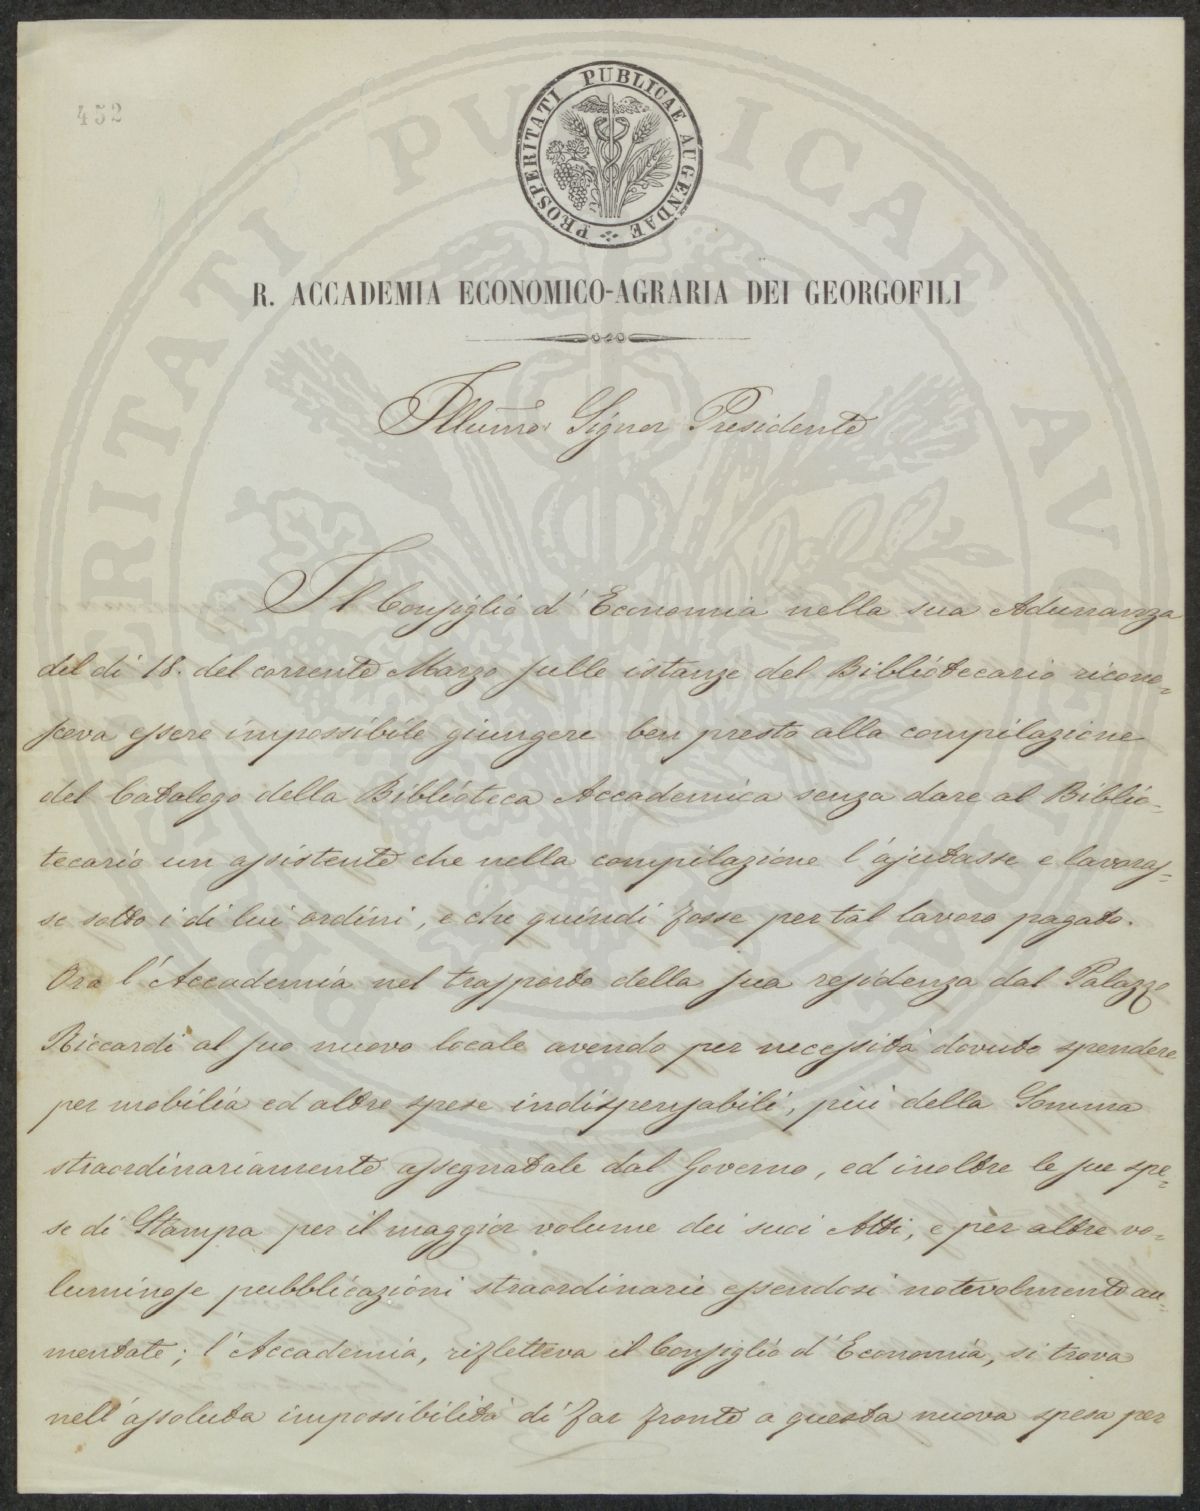 452
PROSPERITATI PUBLICAE AUGENDAE
R. ACCADEMIA ECONOMICO-AGRARIA DEI GEORGOFILI
Illumo Signor Presidente
Il Consiglio d'Economia nella sua Adunanza
del dì 18. del corrente Marzo sulle istanze del Bibliotecario ricono-
sceva essere impossibile giungere ben presto alla compilazione
del Catalogo della Biblioteca Accademica senza dare al Biblio-
tecario un assistente che nella compilazione l'ajutasse e lavoras-
se sotto i di lui ordini, e che quindi fosse per tal lavoro pagato.
Ora l'Accademia nel trasporto della sua residenza dal Palazzo
Riccardi al suo nuovo locale avendo per necessità dovuto spendere
per mobilia ed altre spese indispensabili, più della Somma
straordinariamente assegnatale dal Governo, ed inoltre le sue spe-
se di Stampa per il maggior volume dei suoi Atti, e per altre vo-
luminose pubblicazioni straordinarie essendosi notevolmente au-
mentate; l'Accademia, rifletteva il Consiglio d'Economia, si trova
nell'assoluta impossibilità di far fronte a questa nuova spesa per